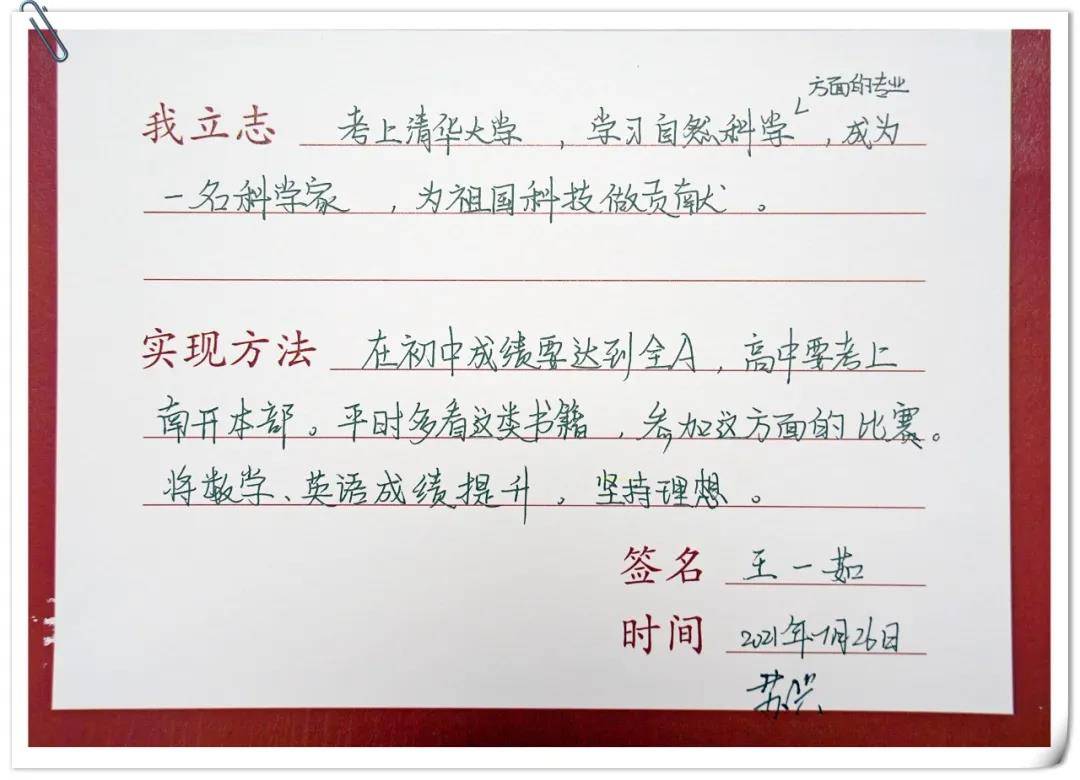 方面的专业
我立志 考上清华大学，学习自然科学，成为
一名科学家，为祖国科技做贡献。
实现方法 在初中成绩要达到全A，高中要考上
南开本部。平时多看这类书籍，参加这方面的比赛。
将数学、英语成绩提升。坚持理想。
签名 王一茹
时间 2021年1月26日